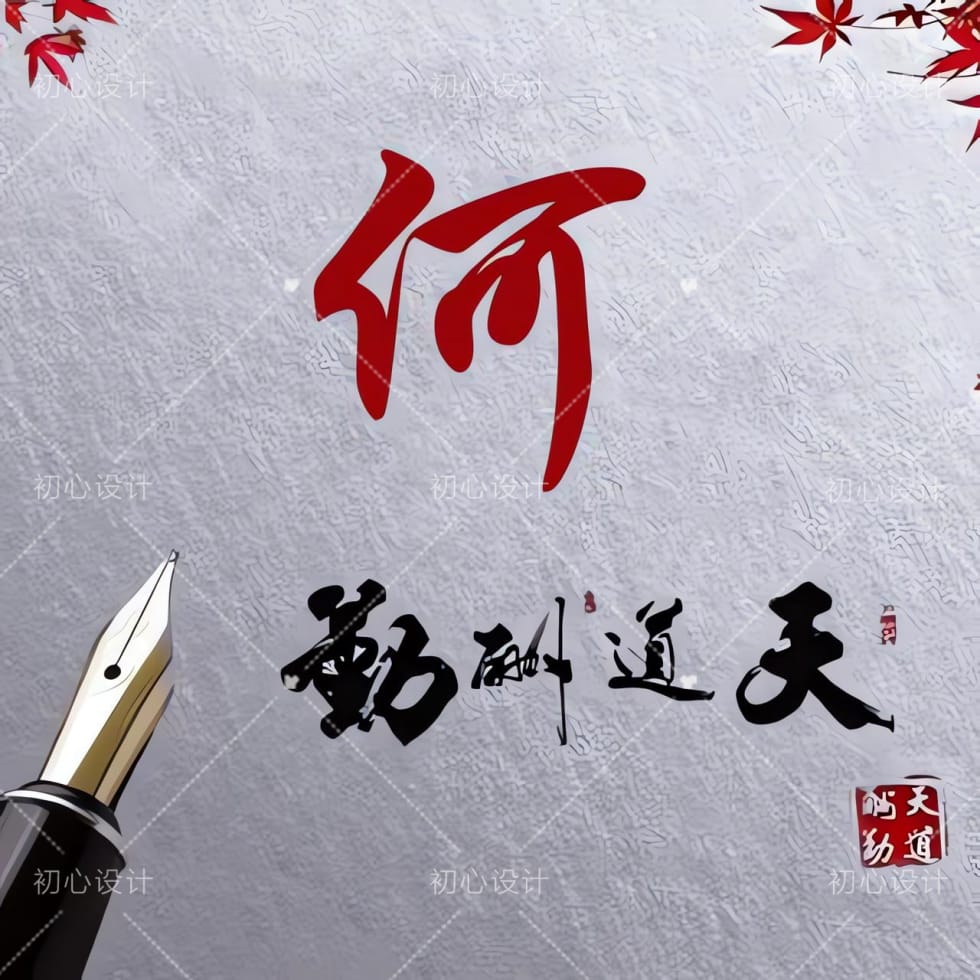 初心设计 初心设计 初心设计
何
初心设计 初心设计 初心设计
天道酬勤
天道
酬勤
初心设计 初心设计 初心设计